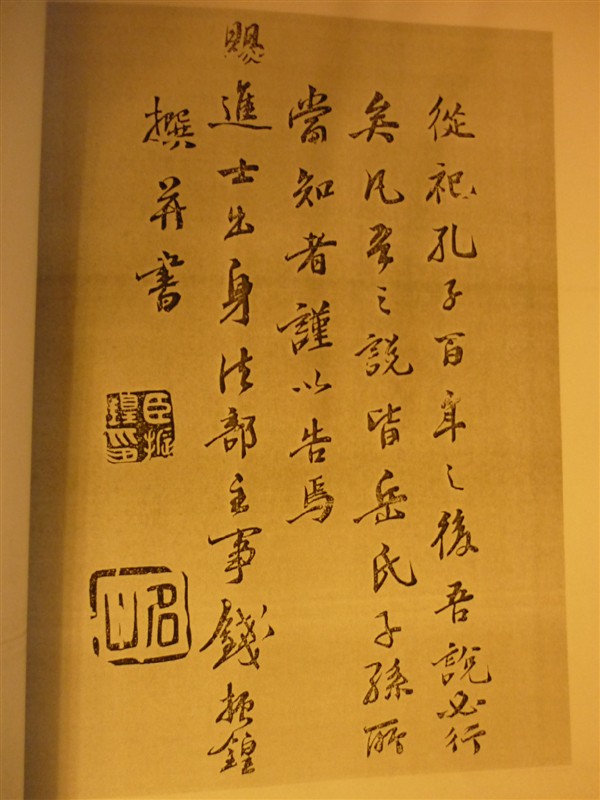 從祀孔子百年之後吾說必行
矣凡吾之說皆岳氏子孫所
當知者謹以告焉
賜進士出身法部主事錢振鍠
撰并書
臣振鍠印
名山